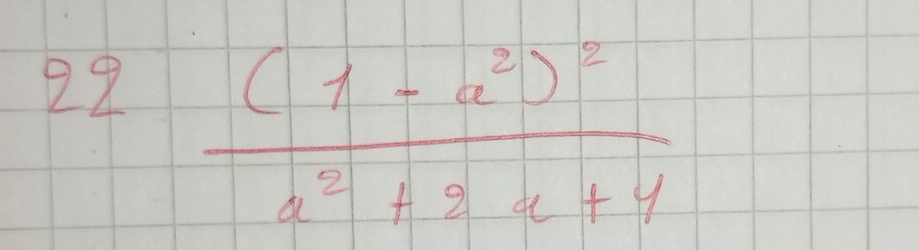 22 (1 - a²)²
a² + 2a + 1